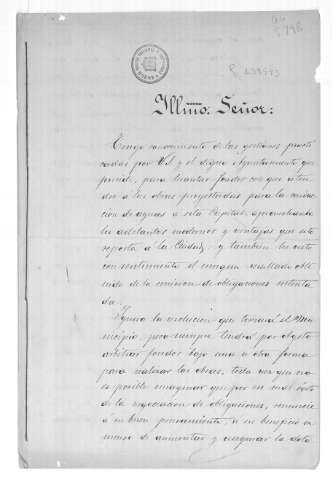 R 239593
Illmo. Señor:
Tengo conocimiento de las gestiones practi
cadas por V.S. y el digno Ayuntamiento que
preside, para levantar fondos con que aten
der á las obras proyectadas para la conduc
cion de aguas á esta Capital, aprovechando
los adelantos modernos y ventajas que esto
reporta á la Ciudad, y tambien he visto
con sentimiento el ningun resultado obte
nido de la emision de obligaciones intenta
da.
Ignoro la resolucion que tomará el Mu
nicipio, pero siempre tendrá por objeto
arbitrar fondos bajo una ú otra forma
para realizar las obras, toda vez que no
es posible imaginar que por el mal éxito
de la negociacion de obligaciones, renuncie
á su buen pensamiento, y al beneficio in
menso de aumentar y asegurar la dota